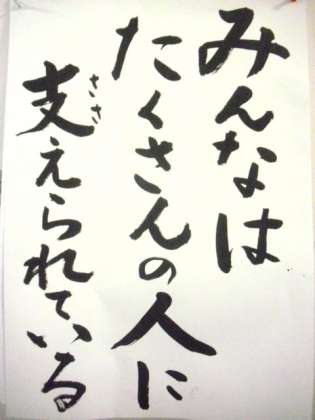 みんなは
たくさんの人に
支えられている
ささ